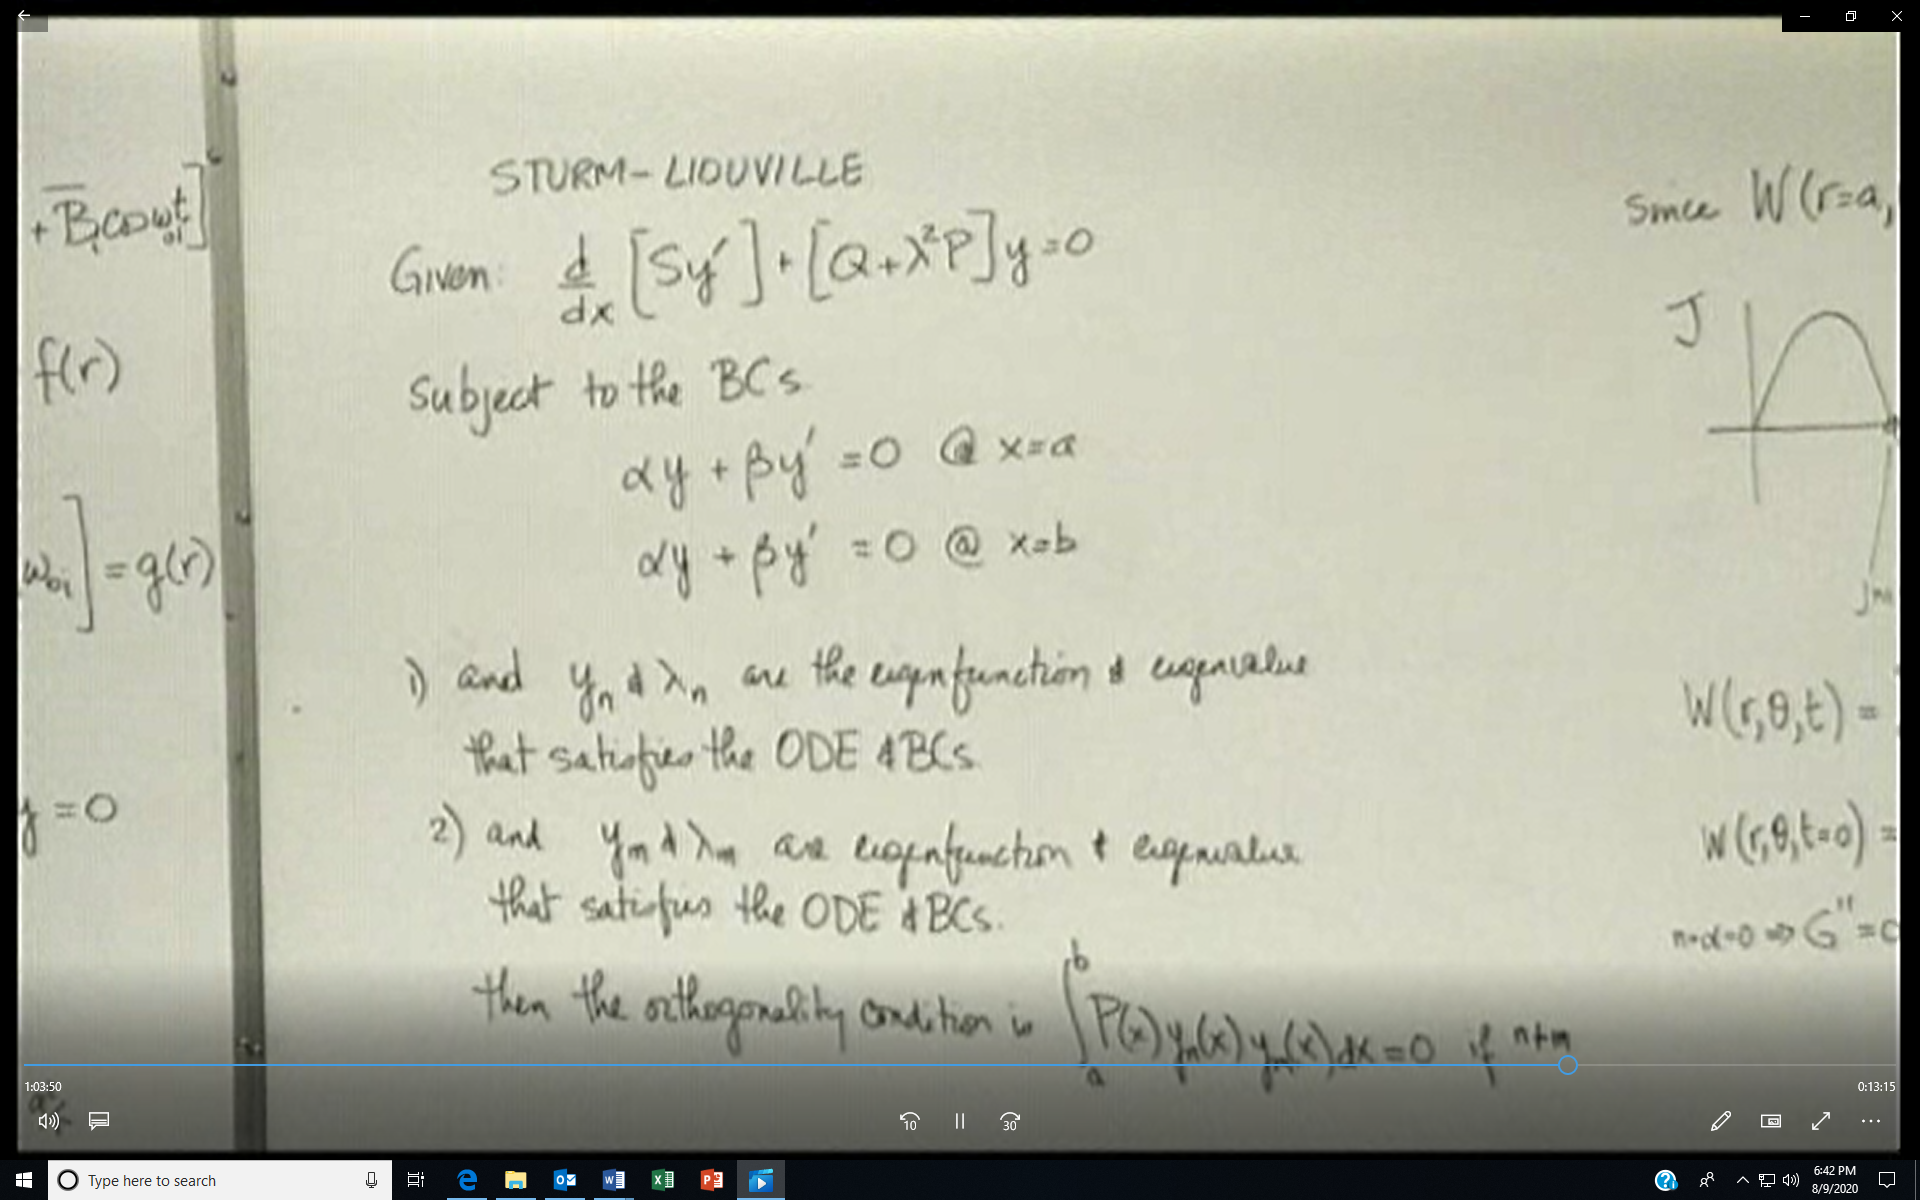 STURM-LIOUVILLE
Given: d/dx [Sy′] + [Q+λ²P]y=0
Subject to the BCs
αy + βy′ =0 @ x=a
αy + βy′ =0 @ x=b
1) and yn & λn are the eigenfunction & eigenvalue
that satisfies the ODE & BCs.
2) and ym & λm are eigenfunction & eigenvalue
that satisfies the ODE & BCs.
then the orthogonality condition is ∫ₐᵇ P(x) yn(x) ym(x) dx=0 if n≠m
+ B̅ᵢcosω₀ᵢt]
f(r)
ω₀ᵢ] = g(r)
y =0
Since W(r=a,
J
W(r,θ,t) =
W(r,θ,t=0) =
n=α=0 ⇒ G″=0
1:03:50
0:13:15
10
30
Type here to search
6:42 PM
8/9/2020